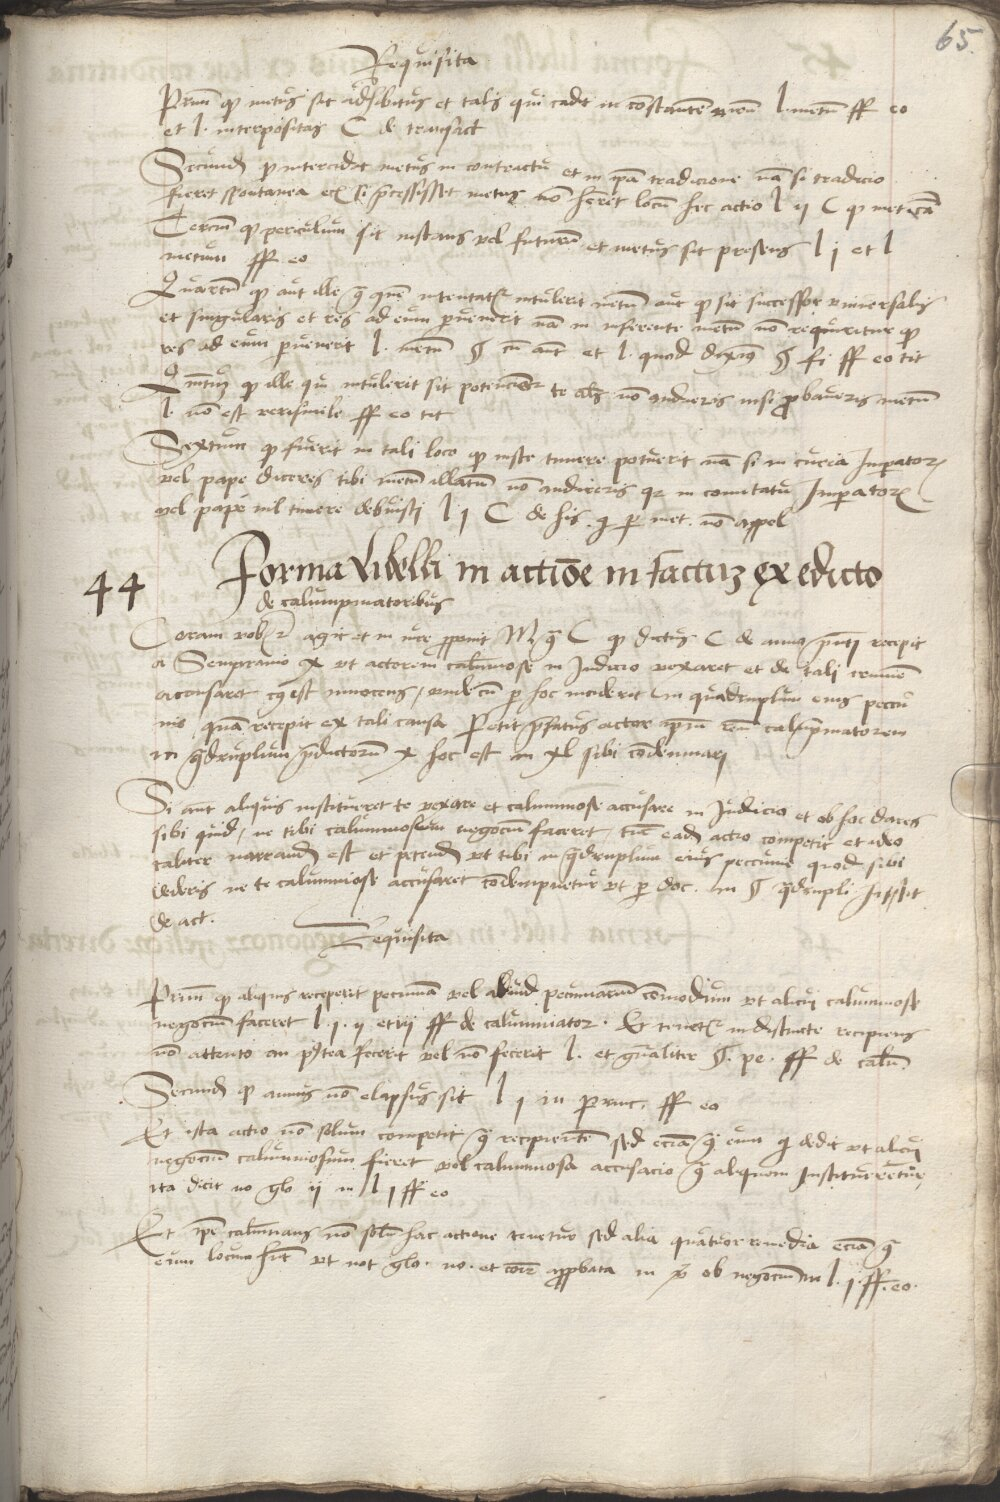 65
Requisita
Primū qp metus sit adhibitus et talis qui cadit in constantē virū l. metū ff eo
et l. interpositas C de transact
Secund qp intercidat metus in contractu et in ipā tradicione nā si tradicio
fieret spontanea eciā si p̄cessisset metus nō heret locū hec actio l ij C qp met cā
Terciū qp periculum sit instans vel futurū et metus sit presens l j et l
metum ff eo
Quartū qp aut ille q̄ quē intentat intulerit metū aut qp sit successor vniuersalis
et singularis et res ad eum peruenerit nā in inferente metū nō requiritur qp
res ad eum peruenerit l. metū § cū aut et l. quod diximus § fi ff eo tit
Quintū qp ille qui intulerit sit potencior te als nō audieris nisi probaueris metū
l. nō est verisimile ff eo tit
Sextum qp fuerit in tali loco qp iuste timere potuerit nā si in curia Imperator
vel pape diceres tibi metū illatū nō audireris qr in comitatu Imperator
vel pape nil timere debuisti l j C de his q p met. nō appel
44 Forma Libelli in actiōe in factuȝ ex edicto
de calumpniatoribus
Coram vob etc agit et in iure pponit M q̄ C qp dictus C de anno p̄nti recepit
a Sempronio x vt actorem calūniose in Iudicio vexaret et de tali crimine
accusaret cuius est innocens / vnde cū p hoc inciderit in quadruplum eius peccu
nie quā recepit ex tali causa Petit p̄fatus actor ipm reū calūpniatorem
in q̄druplum p̄dictorū x hoc est in xl sibi cōdemnari
Si aut aliquis institueret te vexare et calumniose accusare in Iudicio et ob hoc dares
sibi quid / ne tibi calumniosum negociū faceret / tūc eadē actio competit et ideo
taliter narrandū est et petendū vt tibi in q̄druplum eius peccunie quod sibi
dederis ne te calumniose accusaret cōdempnetur vt p doc. in § q̄drupli Instit
de act.
Requisita
Primū qp aliquis receperit pecuniā vel aliud pecuniariū cōmodum vt alicui calumniose
negociū faceret l. j. ij et iij ff de calumniator. Et tenet indistincte recipiens
nō attento an postea fecerit vel nō fecerit l. et gnaliter §. pe. ff de calū.
Secund qp annus nō elapsus sit l j in princ. ff eo
Et ista actio nō solum competit q̄ recipientē sed eciā q̄ eum q dedit vt alicui
negociū calumniosum fieret vel calumniosa accusacio q̄ aliquem Institueretur
ita dicit no glo ij in l j ff eo
Et ipē calūnians nō solū hac actione tenetur sed alia quatuor remedia eciā q̄
eum locum hnt vt not glo. no. et coīr appbata in v̊ ob negociū in l. j. ff. eo.